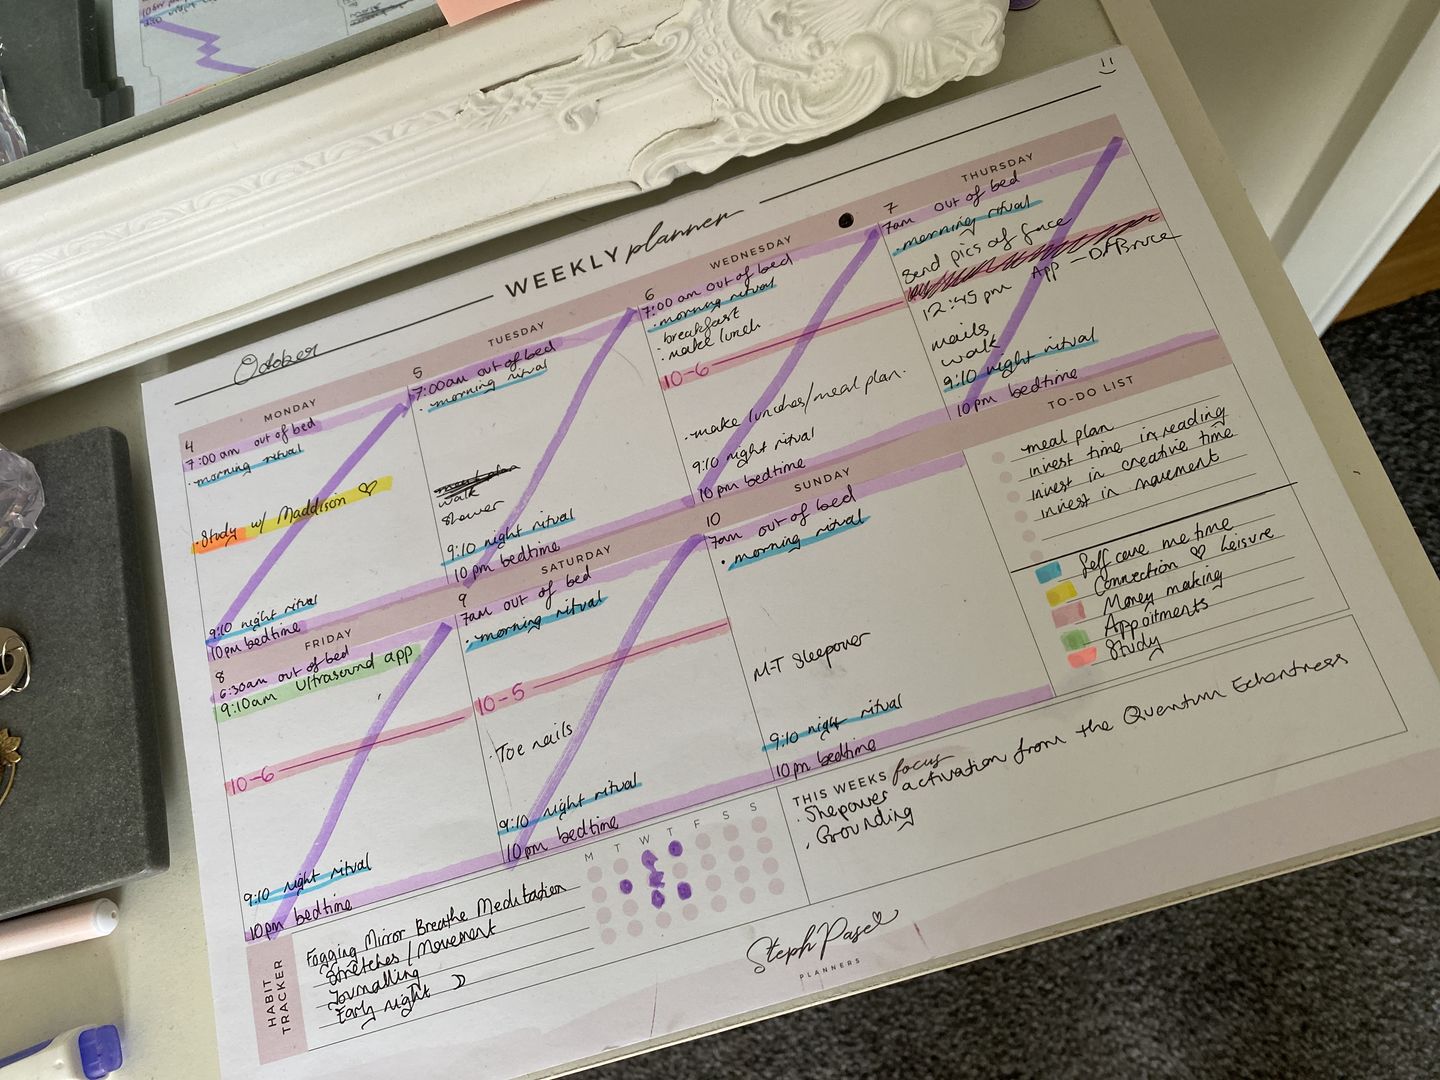 WEEKLY planner
October
MONDAY
4
7:00 am out of bed
· morning ritual
· Study w/ Maddison ♡
9:10 night ritual
10pm bedtime
TUESDAY
5
7:00am out of bed
· morning ritual
walk
shower
9:10 night ritual
10pm bedtime
WEDNESDAY
6
7:00 am out of bed
· morning ritual
· breakfast
· make lunch
10-6
· make lunches/meal plan.
9:10 night ritual
10pm bedtime
THURSDAY
7
7am out of bed
· morning ritual
Send pics of face
12:45pm App - Dr Bruce
nails
walk
9:10 night ritual
10pm bedtime
FRIDAY
8
6:30am out of bed
9:10am Ultrasound app
10-6
9:10 night ritual
10pm bedtime
SATURDAY
9
7am out of bed
· morning ritual
10-5
· Toe nails
9:10 night ritual
10pm bedtime
SUNDAY
10
7am out of bed
· morning ritual
M-T Sleepover
9:10 night ritual
10pm bedtime
TO-DO LIST
meal plan
invest time in reading
invest in creative time
invest in movement
Self care me time
Connection ♡ Leisure
Money making
Appoitments
Study
THIS WEEKS focus
· Shepower activation from the Quantum Echantress
· Grounding
HABIT TRACKER
M T W T F S S
Fogging Mirror Breathe Meditation
Stretches / Movement
Journalling
Early night
Steph Pase
PLANNERS